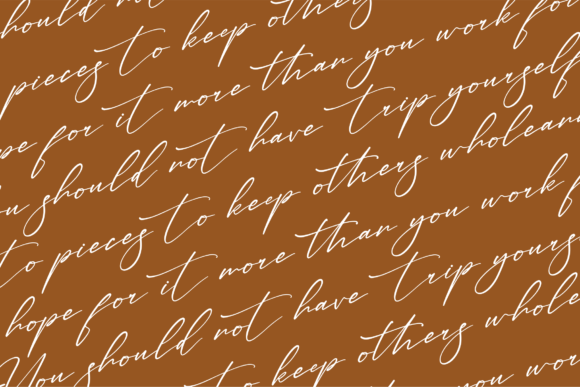 should not
pieces to keep others
hope for it more than you work for
You should not have trip yourself
to pieces to keep others wholeand
hope for it more than you work f
You should not have trip yourse
to keep others whole
than you work